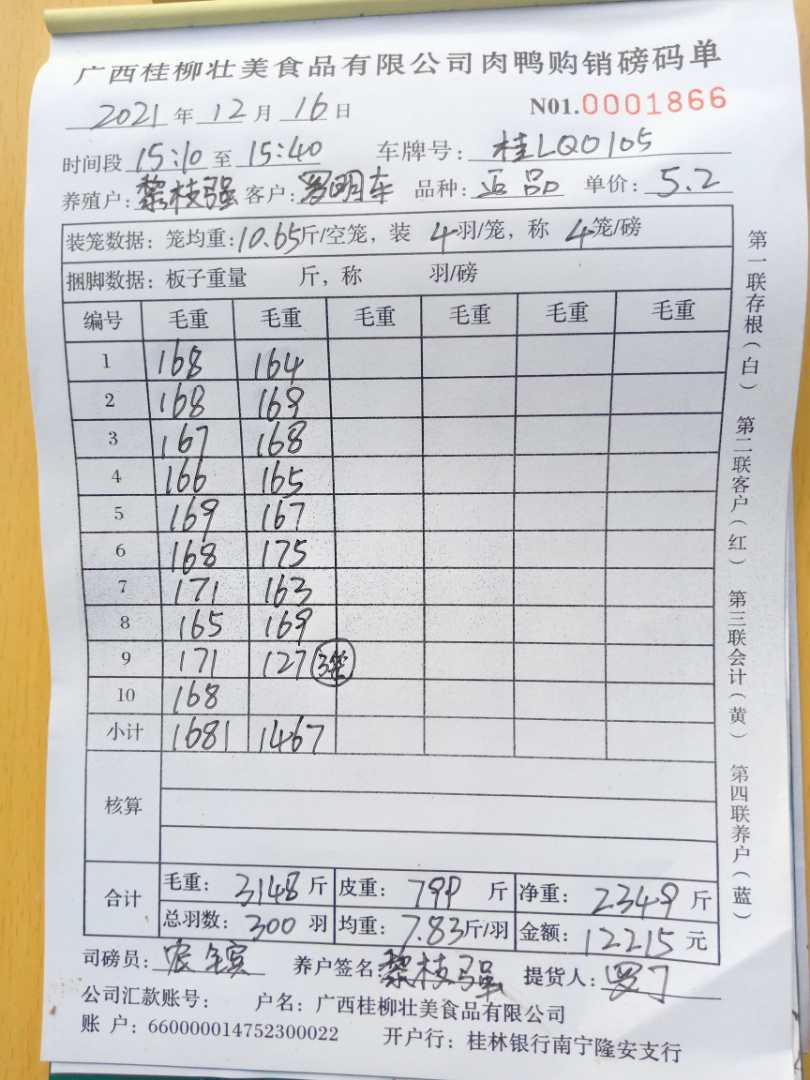 广西桂柳壮美食品有限公司肉鸭购销磅码单
2021年12月16日 N01.0001866
时间段 15:10 至 15:40 车牌号: 桂LQ0105
养殖户: 黎枝强 客户: 罗明车 品种: 正品 单价: 5.2
装笼数据: 笼均重: 10.65斤/空笼, 装 4羽/笼, 称 4笼/磅
捆脚数据: 板子重量 斤, 称 羽/磅
编号 毛重 毛重 毛重 毛重 毛重 毛重
1 168 164
2 168 169
3 167 168
4 166 165
5 169 167
6 168 175
7 171 163
8 165 169
9 171 127 3笼
10 168
小计 1681 1467
核算
合计 毛重: 3148斤 皮重: 799斤 净重: 2349斤
总羽数: 300羽 均重: 7.83斤/羽 金额: 12215元
司磅员: 养户签名: 黎枝强 提货人: 罗
公司汇款账号: 户名: 广西桂柳壮美食品有限公司
账户: 660000014752300022 开户行: 桂林银行南宁隆安支行
第一联存根(白) 第二联客户(红) 第三联会计(黄) 第四联养户(蓝)